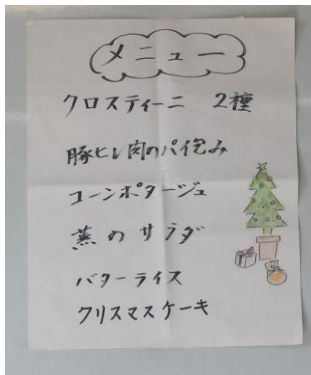 メニュー
クロスティーニ 2種
豚ヒレ肉のパイ包み
コーンポタージュ
蕪のサラダ
バターライス
クリスマスケーキ